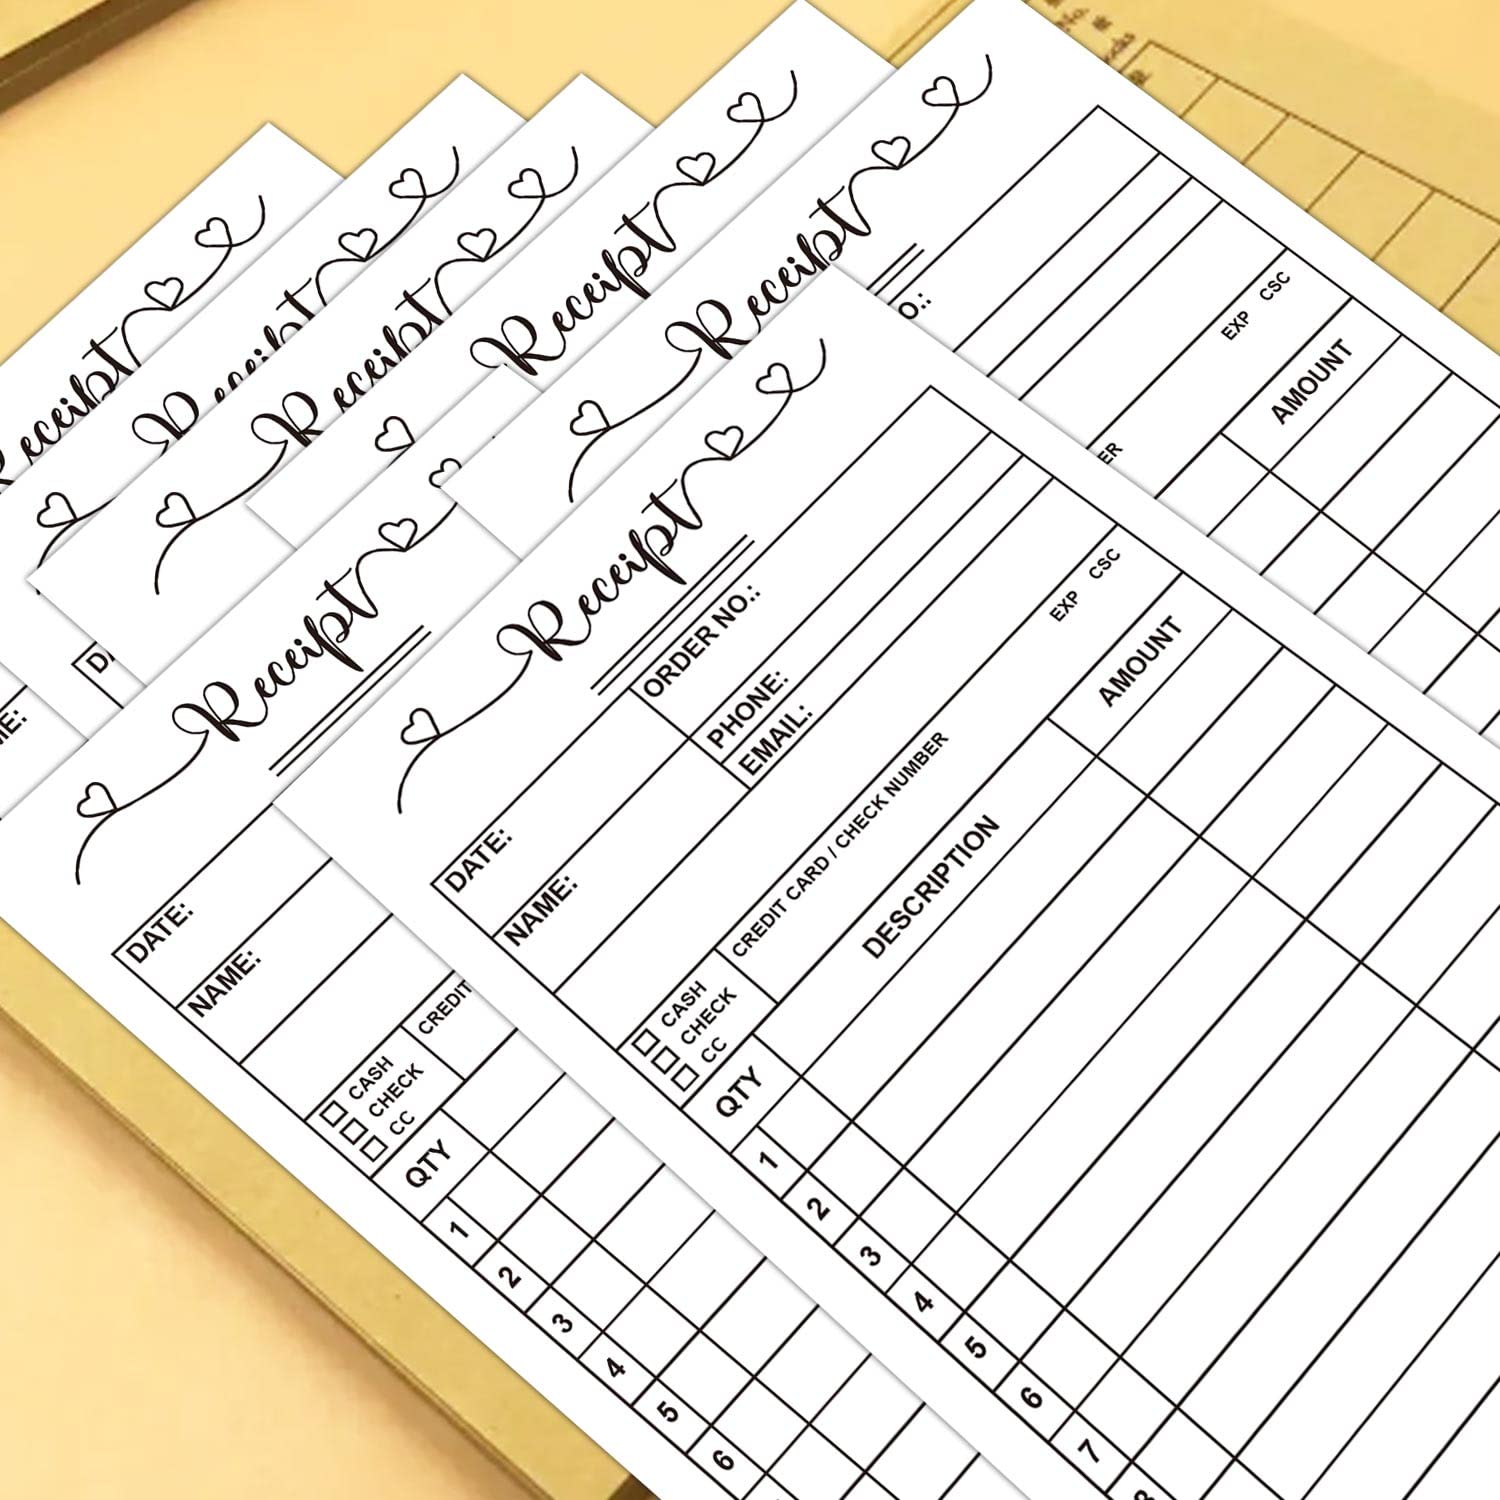 Receipt
Receipt
Receipt
Receipt
Receipt
O.:
EXP CSC
AMOUNT
ER
D
ME:
Receipt
DATE:
NAME:
CASH
CHECK
CC
CREDIT
QTY
1
2
3
4
5
6
Receipt
DATE:
ORDER NO.:
NAME:
PHONE:
EMAIL:
CASH
CHECK
CC
CREDIT CARD / CHECK NUMBER
EXP CSC
QTY
DESCRIPTION
AMOUNT
1
2
3
4
5
6
7
8